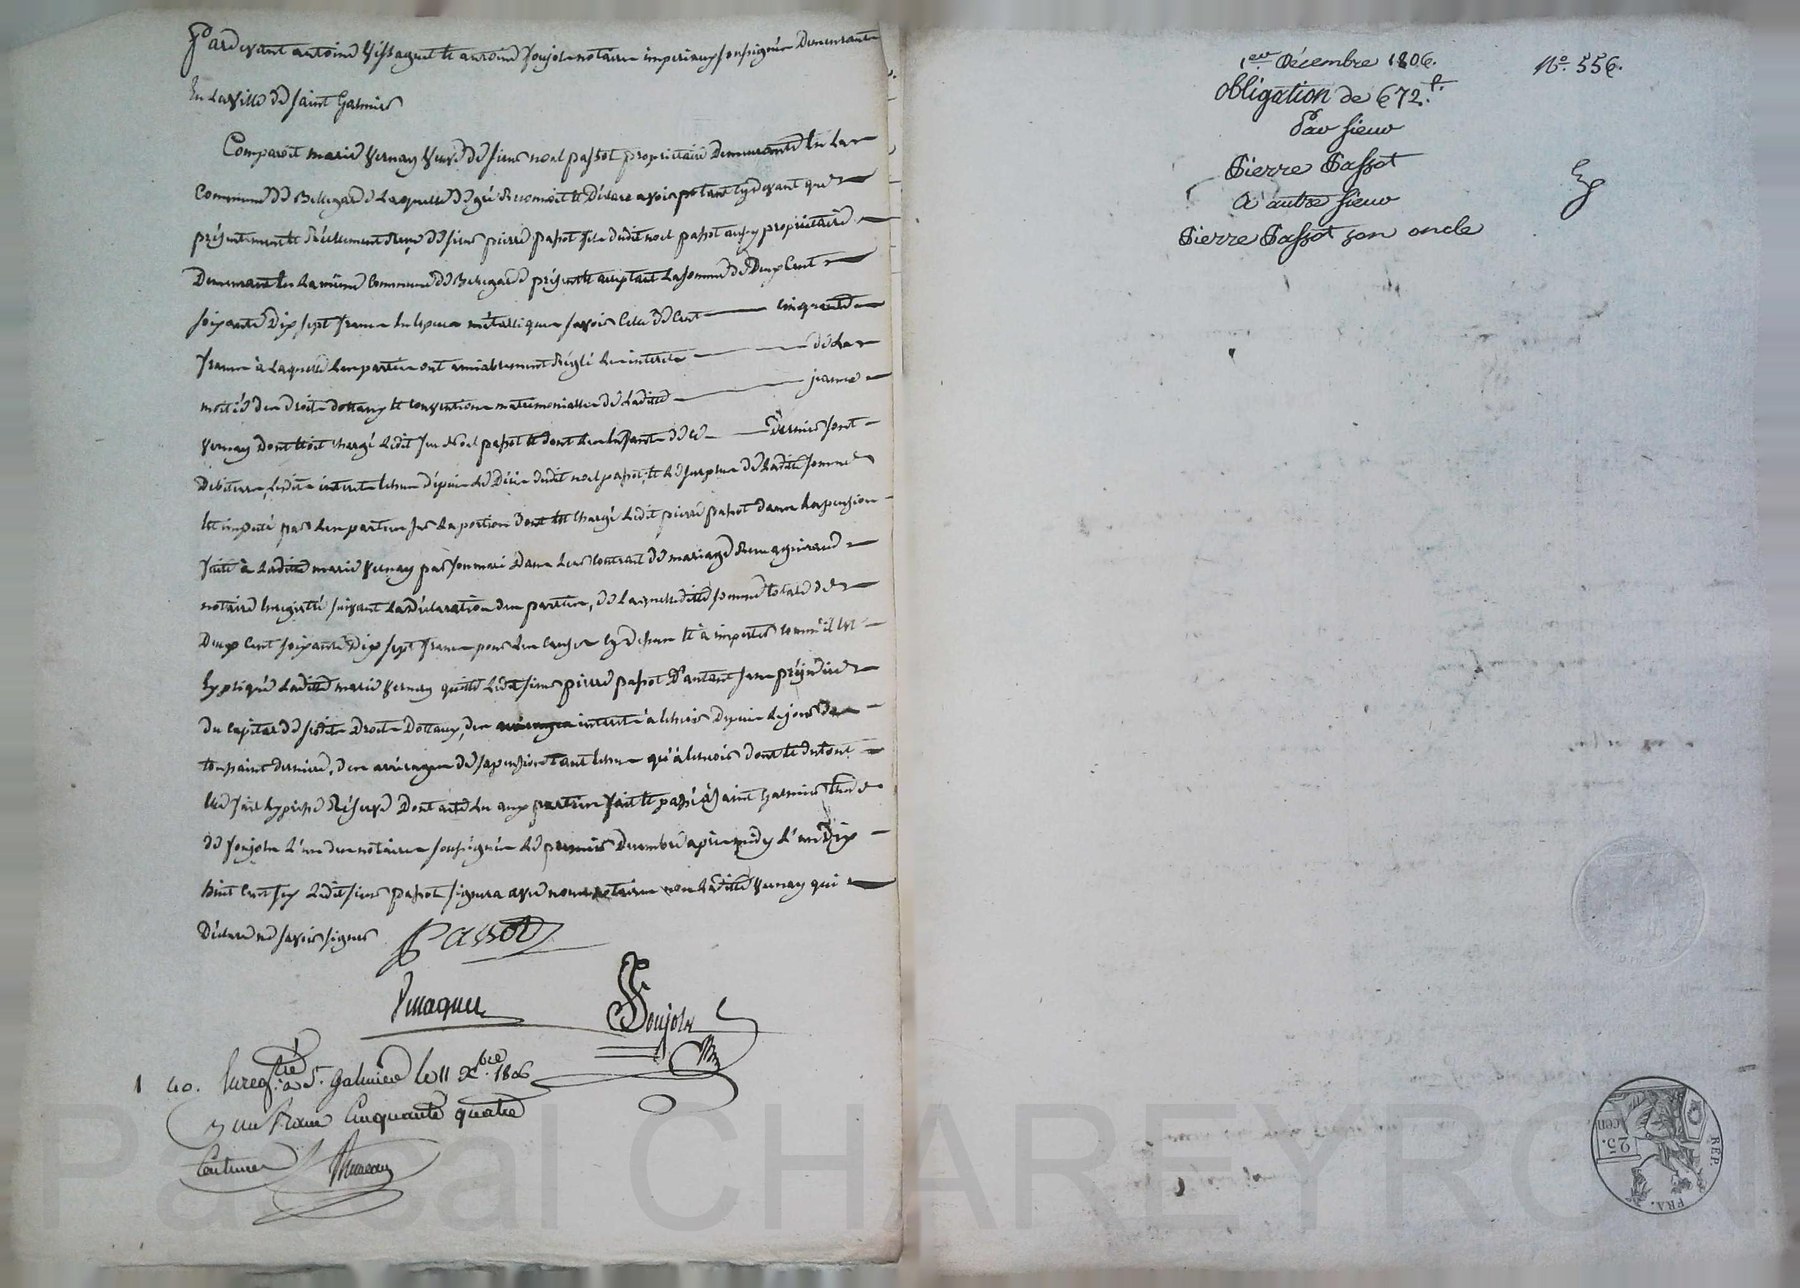 Pardevant antoine Vissaguet et antoine Soujols notaires imperiaux soussignés Demeurants
En la ville de Saint Galmier
Comparoit marie Vernay Veuve de sieur noel passot propriétaire Demeurante En la
Commune de Bellegarde Laquelle de gré Reconnoit et Déclare avoir tant cydevant que
présentement et Réellement Reçu de sieur pierre passot fils dudit noel passot aussy propriétaire
Demeurant En la même Commune de Bellegarde présent et acceptant La somme de Deux Cent
soixante Dix sept francs En Especes métalliques savoir Celle de Cent cinquante
francs à Laquelle Les parties ont amiablement Réglé Les interets de La
moitié des Droits dottaux et conventions matrimonialles de Ladite jeanne
Vernay Dont Etoit chargé Ledit feu Noel passot et dont Les Enfants de ce dernier sont
Debiteurs, Lesdits interets Echus depuis Le Décès dudit noel passot, et Le surplus de Ladite somme
Est imputé par Les parties sur La portion Dont Est Chargé Ledit pierre passot dans La pension
faite à Ladite marie Vernay par son mari Dans Leur Contrat de mariage Reçu
notaire Enregistré suivant La Déclaration des parties, de Laquelle dite somme totale de
Deux Cent soixante Dix sept francs pour Les Causes Cy dessus et à imputer comme il Est
Expliqué Ladite marie Vernay quitte Ledit sieur pierre passot D'autant sans préjudice
du Capital de sesdits Droits Dottaux, des interets à Echeoir Depuis Le jour de
toussaint derniere, des arrérages de sa pension tant Echus qu'à Echeoir dont et du tout
Elle fait Expresse Réserve Dont acte Lu aux parties fait et passé à Saint Galmier Etude
de Soujols L'un des notaires soussignés Le premier Decembre après midy L'an Dix
huit Cent six Ledit sieur passot signera avec nous notaires non Ladite Vernay qui
Déclare ne savoir signer
Passot
Soujols
1 40. Enreg.tré à S.t Galmier le 11 X.bre 1806
un franc Cinquante quatre
Centimes
1er Décembre 1806.
N.o 556.
Obligation de 672 f.
Par sieur
Pierre Passot
A autre sieur
Pierre Passot son oncle
25.
cen
REP.
FRA.
Pascal CHAREYRON